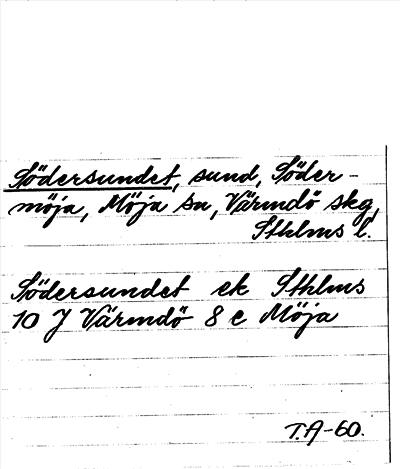 Södersundet, sund, Söder-
möja, Möja sn, Värmdö skg,
Sthlms l.
Södersundet ek Sthlms
10 J Värmdö 8 c Möja
T.A-60.